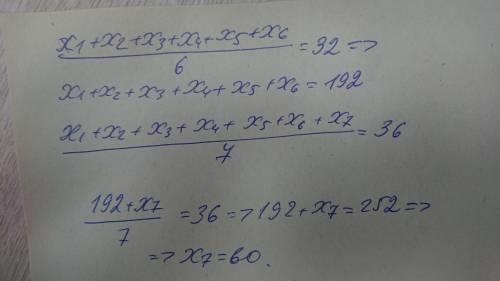 x1+x2+x3+x4+x5+x6
6
=32=>
x1+x2+x3+x4+x5+x6=192
x1+x2+x3+x4+x5+x6+x7
7
=36
192+x7
7
=36=>192+x7=252=>
=>x7=60.